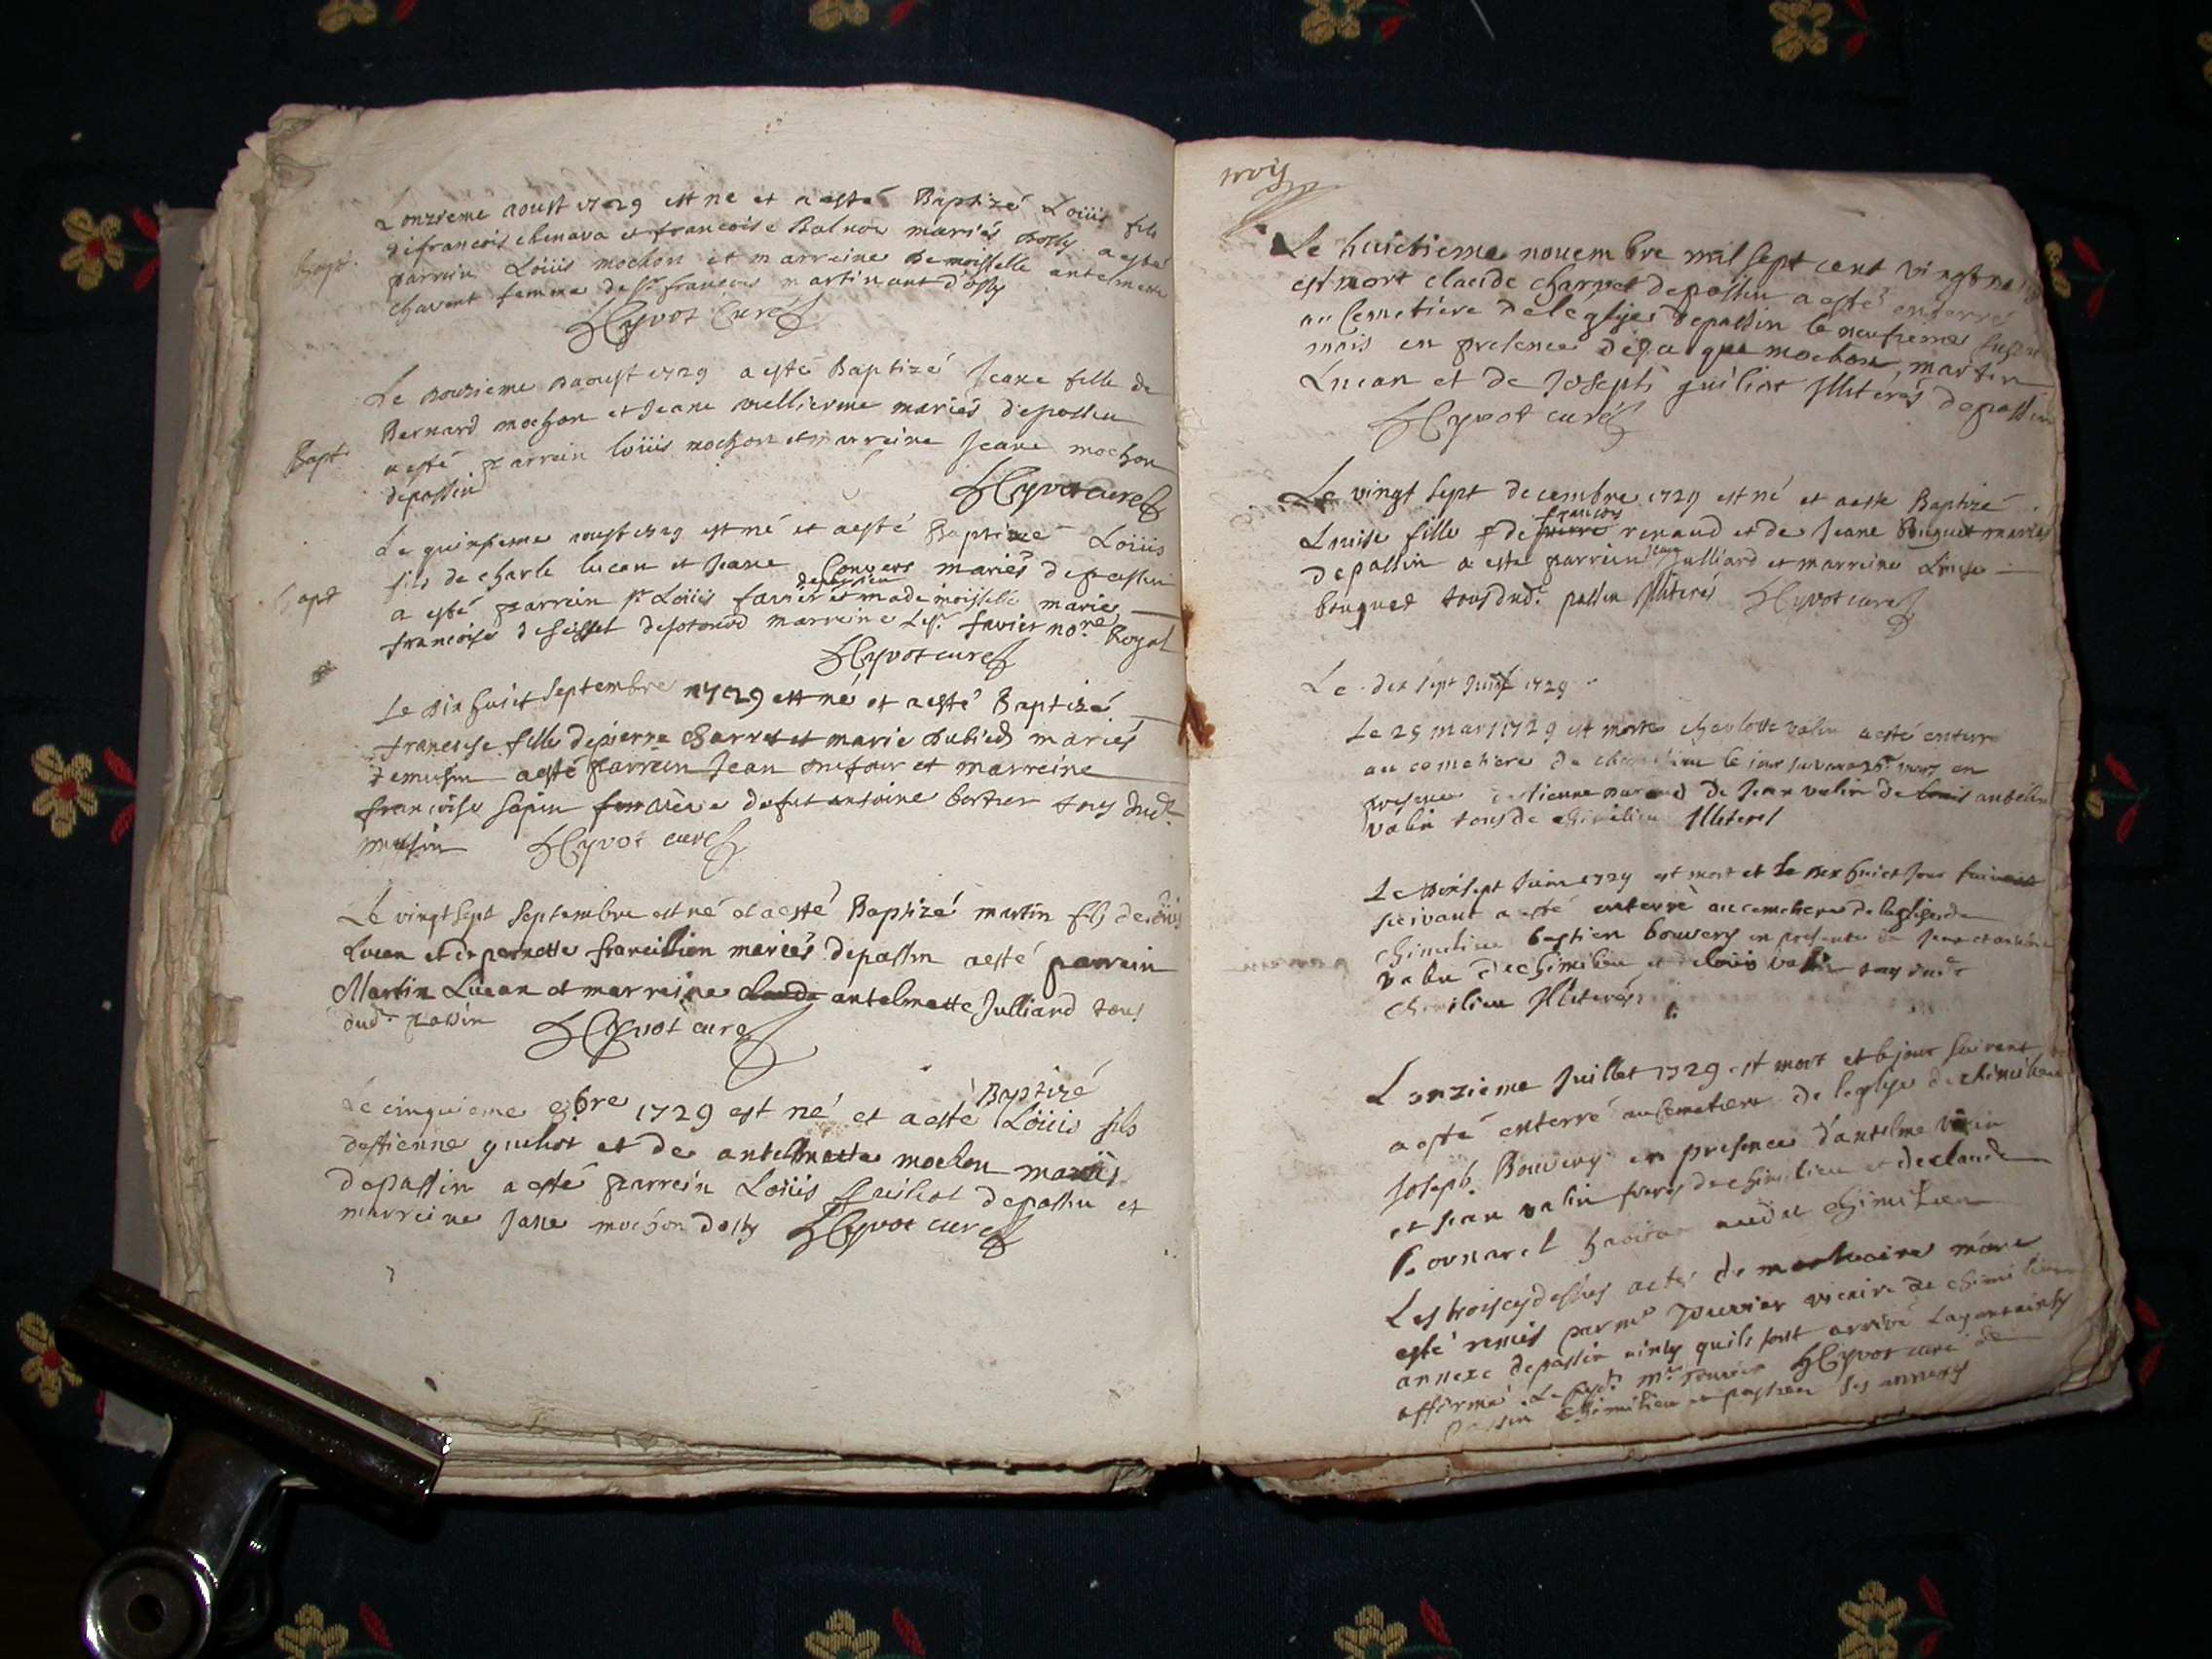 Lonzieme aoust 1729 est ne et a esté Baptizé Loüis fils
de francois chenava et francoise Balnoir mariés dosly a esté
Bapt. parrein Loüis mochon et marreine Demoisselle antelmette
chavent femme de Sr francois martinant d'osly
Hyvot Curé
Le douzieme daoust 1729 a esté Baptizé Jeane fille de
Bernard mochon et Jeane vuellierme mariés depassin
Bapt a esté parrein loüis mochon et marreine Jeane mochon
depassin
Hyvot curé
Le quinsieme aoust 1729 est né et a esté Baptizé Loüis
fils de charle lucan et Jeane Convers mariés depassin
Bapt a esté parrein sr Loüis favier et mademoisselle marie
francoise marreine Le sr favier nore Royal
Hyvot curé
Le dix huict septembre 1729 est né et a esté Baptizé
francoise fille de pierre Charvet et marie Dubied mariés
demusin a esté parrein Jean onufour et marreine
francoise sapin de fut antoine bortier tous dudt
musin Hyvot curé
Le vingt sept septembre est né et a esté Baptizé martin fils de loüis
Lucan et de pernette francillion mariés depassin a esté parrein
Martin Lucan et marreine claude antelmette Julliard tous
dudt passin Hyvot curé
Baptizé
Le cinquieme 9bre 1729 est né et a esté Loüis fils
destienne guilliot et de antelmette mochon mariés
depassin a esté parrein Loüis guilliot depassin et
marreine Jane mochon dosly Hyvot curé
trois
Le huictieme novembre mil sept cent vingt neuf
est mort claude charvet depassin a esté enterré
au Cemetiere de leglise depassin le neufieme susdit
mois en presence de mochon, martin
Lucan et de Joseph guiliot Illiterés depassin
Hyvot curé
Le vingt sept decembre 1729 est né et a esté Baptizé
francois
Luise fille de pierre renaud et de Jeane Bouquet mariés
depassin a esté parrein Jean Julliard et marreine Luise
bouquet tous dudt passin Illiterés Hyvot curé
Le dix sept Juin 1729
Le 25 mars 1729 est morte charlotte valin a esté enterré
au cemetiere de chimilieu le jour suivant dt mars en
presence destienne durand de Jean valin de louis antelme
valin tous de chimilieu Illiteres
Le dixsept Juin 1729 est mort et le dix huict Jour suivant
suivant a esté enterré au cemetiere de leglise de
chimilieu bastien bouvery en presence de Jean et antelme
valin de chimilieu et de louis valin tous dudt
chimilieu Illiterés
Lonzieme Juillet 1729 est mort et le jour suivant
a esté enterré au Cemetiere de leglise de chimilieu
Joseph Bouvery en presence d'antelme valin
et Jean valin freres de chimilieu et de claude
habitan audit chimilieu
Les trois cy dessus actes de mortuaire m'ont
esté remis par mr Jouvier vicaire de chimilieu
annexe depassin ainsy quils sont arrivé
affirmé Le susdt mr Jouvier Hyvot curé de
passin chimilieu et ses annexes